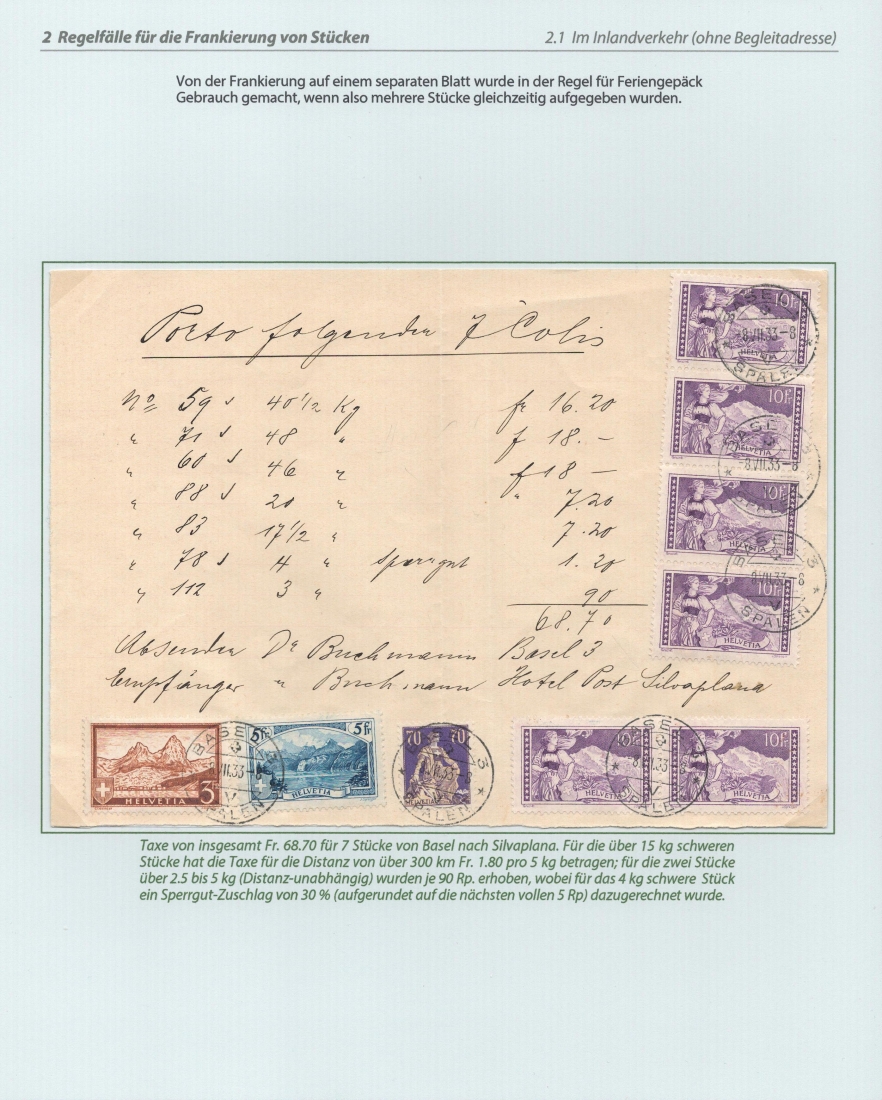 2 Regelfälle für die Frankierung von Stücken 2.1 Im Inlandverkehr (ohne Begleitadresse)
Von der Frankierung auf einem separaten Blatt wurde in der Regel für Feriengepäck
Gebrauch gemacht, wenn also mehrere Stücke gleichzeitig aufgegeben wurden.
Porto folgender 7 Colis
No 59 ✓ 40 1/2 Kg fr 16.20
" 71 ✓ 48 " f 18.—
" 60 ✓ 46 " f 18 —
" 88 ✓ 20 " " 7.20
" 83 17 1/2 " 7.20
" 78 ✓ 4 " sperrgut 1.20
" 112 3 " 90
68.70
Absender Dr Buchmann Basel 3
Empfänger " Buchmann Hotel Post Silvaplana
10Fr HELVETIA
BASEL 3 8.VII.33-8 SPALEN
10Fr HELVETIA
BASEL 3 8.VII.33-8 SPALEN
10Fr HELVETIA
BASEL 3 8.VII.33-8 SPALEN
10Fr HELVETIA
3 HELVETIA
BASEL 3 8.VII.33-8 V SPALEN
5Fr 5Fr HELVETIA
70 70 HELVETIA
BASEL 3 8.VII.33-8 V SPALEN
10Fr HELVETIA
BASEL 3 8.VII.33-8 V SPALEN
10Fr HELVETIA
Taxe von insgesamt Fr. 68.70 für 7 Stücke von Basel nach Silvaplana. Für die über 15 kg schweren
Stücke hat die Taxe für die Distanz von über 300 km Fr. 1.80 pro 5 kg betragen; für die zwei Stücke
über 2.5 bis 5 kg (Distanz-unabhängig) wurden je 90 Rp. erhoben, wobei für das 4 kg schwere Stück
ein Sperrgut-Zuschlag von 30 % (aufgerundet auf die nächsten vollen 5 Rp) dazugerechnet wurde.